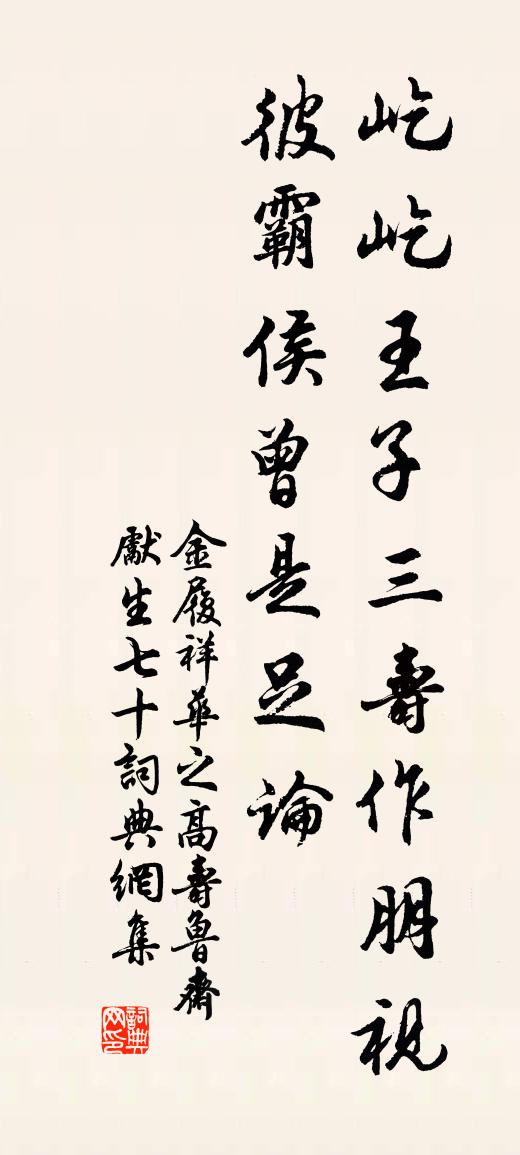 屹屹王子三壽作朋視
彼霸侯曾是足論
金履祥華之高壽魯齋
獻生七十詞典網集
詞典网印